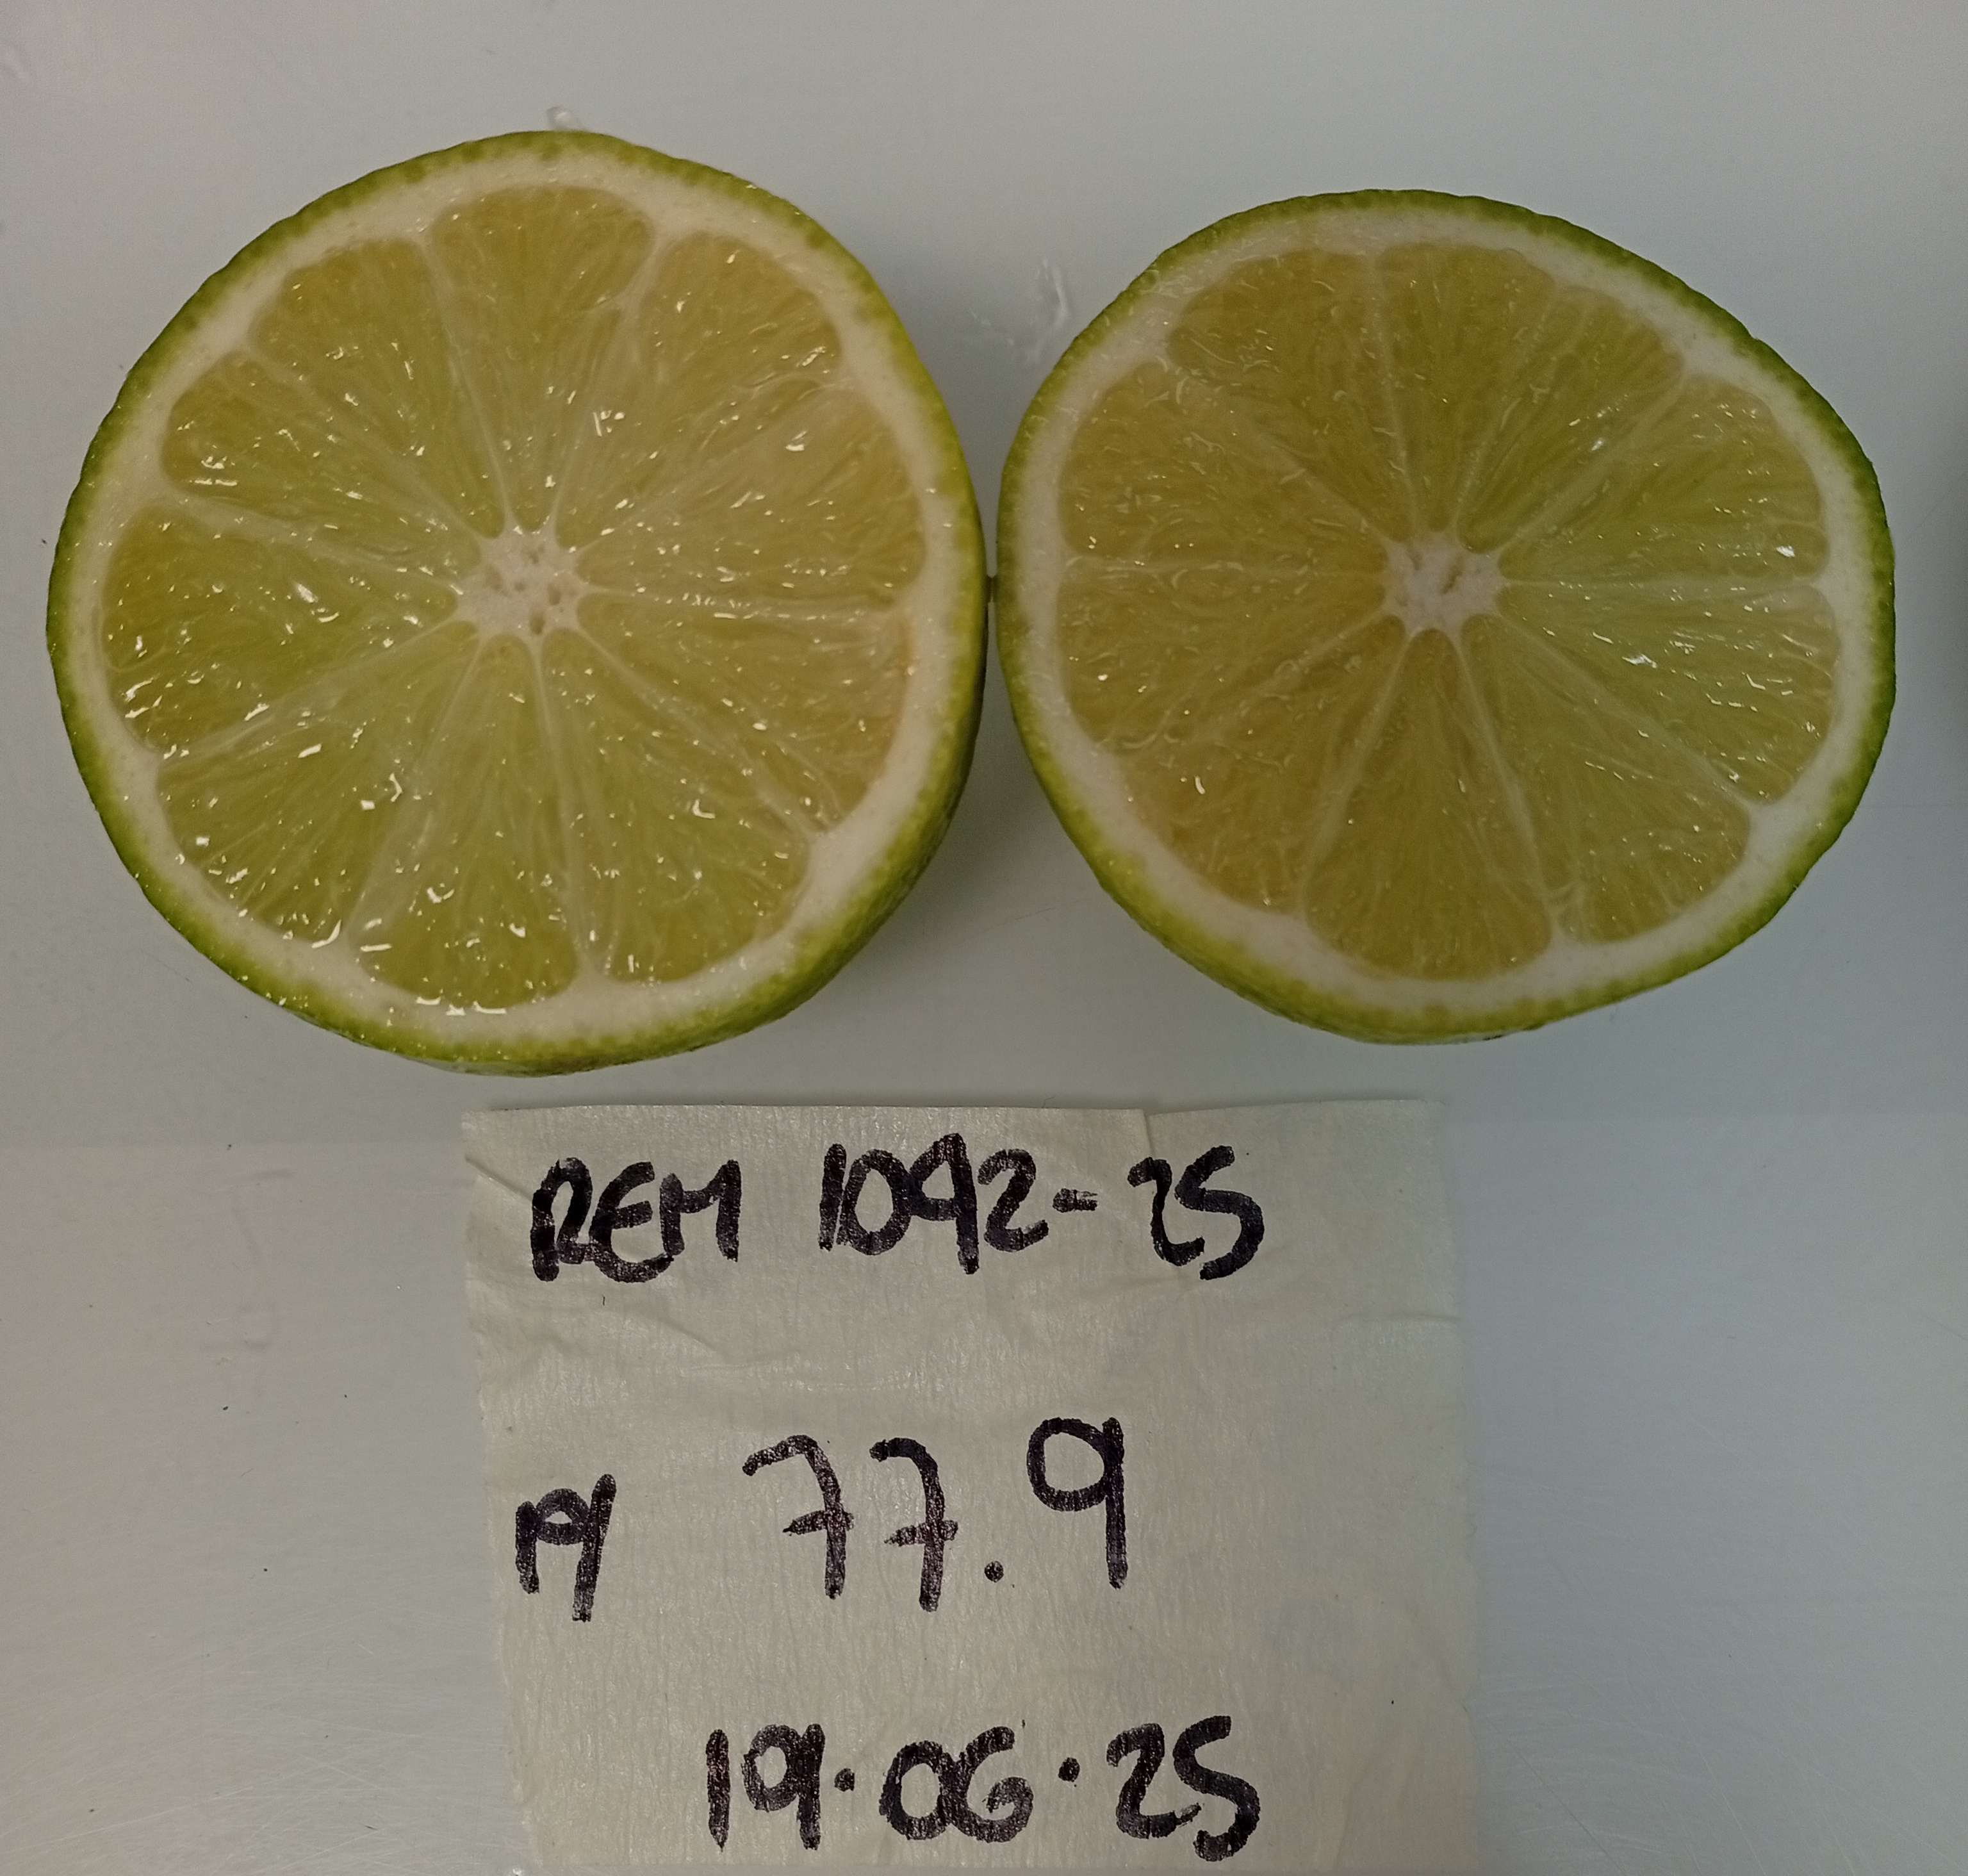 REM 1092-25
M 77.9
19.06.25